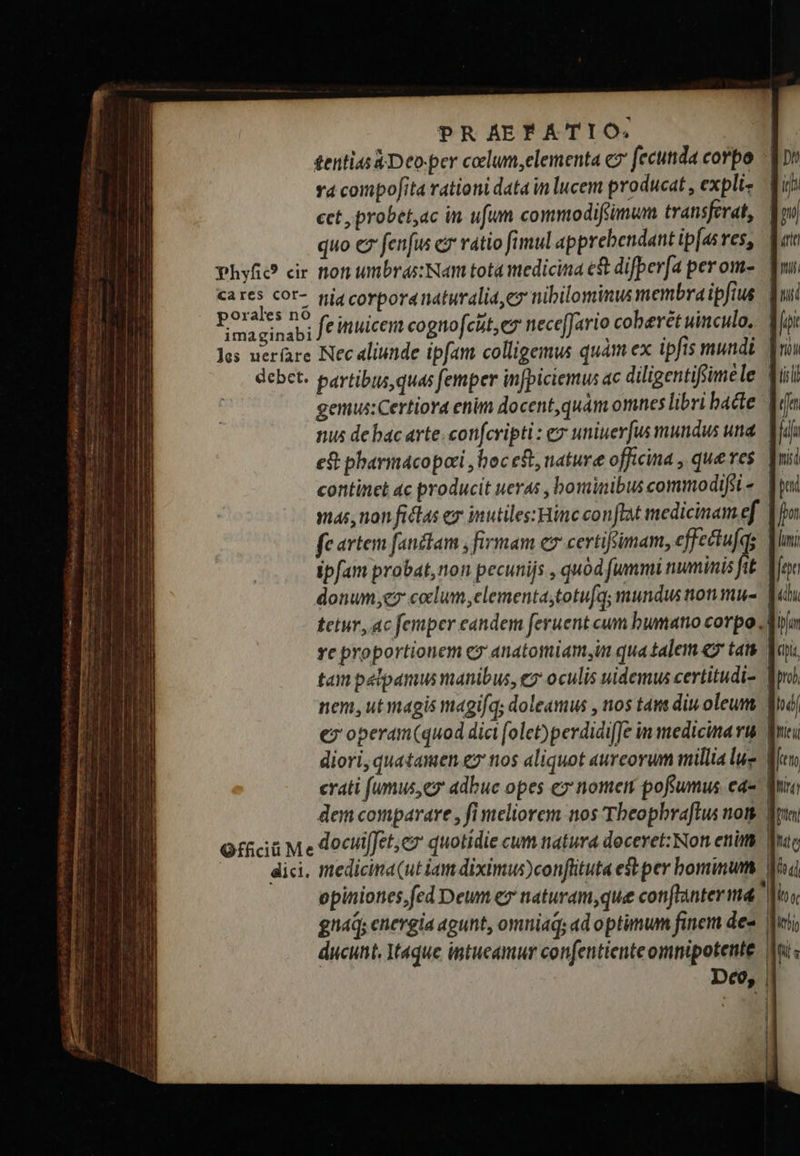 PRAEFATIO.
tentias à Deo per cœlum, elementa & secunda corpo
ra composita rationi data in lucem producat, expli-
cet, probet, ac in usum commodißimum transferat,
quo & sensus & ratio simul apprehendant ipsas res,
Physic⁹ cir non umbras: Nam tota medicina est dispersa per om-
ca res cor- nia corpora naturalia, & nihilominus membra ipsius
porales nō imaginabi se inuicem cognoscūt, & necessario cohærēt uinculo.
les uersare Nec aliunde ipsam colligemus quàm ex ipsis mundi
debet. partibus, quas semper inspiciemus ac diligentißime le
gemus: Certiora enim docent, quàm omnes libri hacte
nus de hac arte conscripti: & uniuersus mundus una
est pharmacopœi, hoc est, naturæ officina, quæ res
continet ac producit ueras, hominibus commodißi-
mas, non fictas & inutiles: Hinc constat medicinam es
se artem sanctam, firmam & certißimam, effectusq;
ipsam probat, non pecunijs, quòd summi numinis sit
donum, & cœlum, elementa, totusq; mundus non mu-
tetur, ac semper eandem seruent cum humano corpo.
re proportionem & anatomiam, in qua talem & tan
tam palpamus manibus, & oculis uidemus certitudi-
nem, ut magis magisq; doleamus, nos tam diu oleum
& operam (quod dici solet) perdidisse in medicina ru
diori, qua tamen & nos aliquot aureorum millia lu-
crati sumus, & adhuc opes & nomen poßumus ea-
dem comparare, si meliorem nos Theophrastus non
Officiū Me docuisset, & quotidie cum natura doceret: Non enim
dici. medicina (ut iam diximus) constituta est per hominum
opiniones, sed Deum & naturam, quæ constanter ma
gnaq; energia agunt, omniaq; ad optimum finem de-
ducunt. Itaque intueamur consentiente omnipotente
Deo,